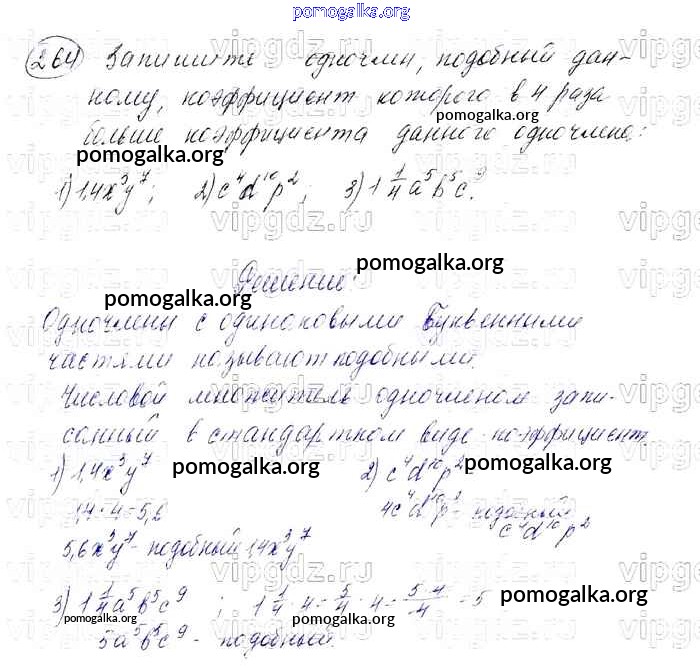 pomogalka.org
264 Запишите одночлен, подобный дан-
ному, коэффициент которого в 4 раза
pomogalka.org
больше коэффициента данного одночлена:
pomogalka.org
1) 1,4x³y⁷; 2) c⁴d¹⁰p²; 3) 1 1/4 a⁵b⁵c⁹.
Решение:
pomogalka.org
pomogalka.org
Одночлены с одинаковыми буквенными
частями называют подобными.
Числовой множитель одночленом запи-
санный в стандартном виде - коэффициент.
1) 1,4x³y⁷ pomogalka.org 2) c⁴d¹⁰p² pomogalka.org
1,4·4=5,6 4c⁴d¹⁰p² - подобный
c⁴d¹⁰p²
5,6x³y⁷ - подобный 1,4x³y⁷
3) 1 1/4 a⁵b⁵c⁹ ; 1 1/4 · 4 = 5/4 · 4 = 5·4/4 = 5
pomogalka.org pomogalka.org pomogalka.org
5a⁵b⁵c⁹ - подобный.
vipgdz.ru